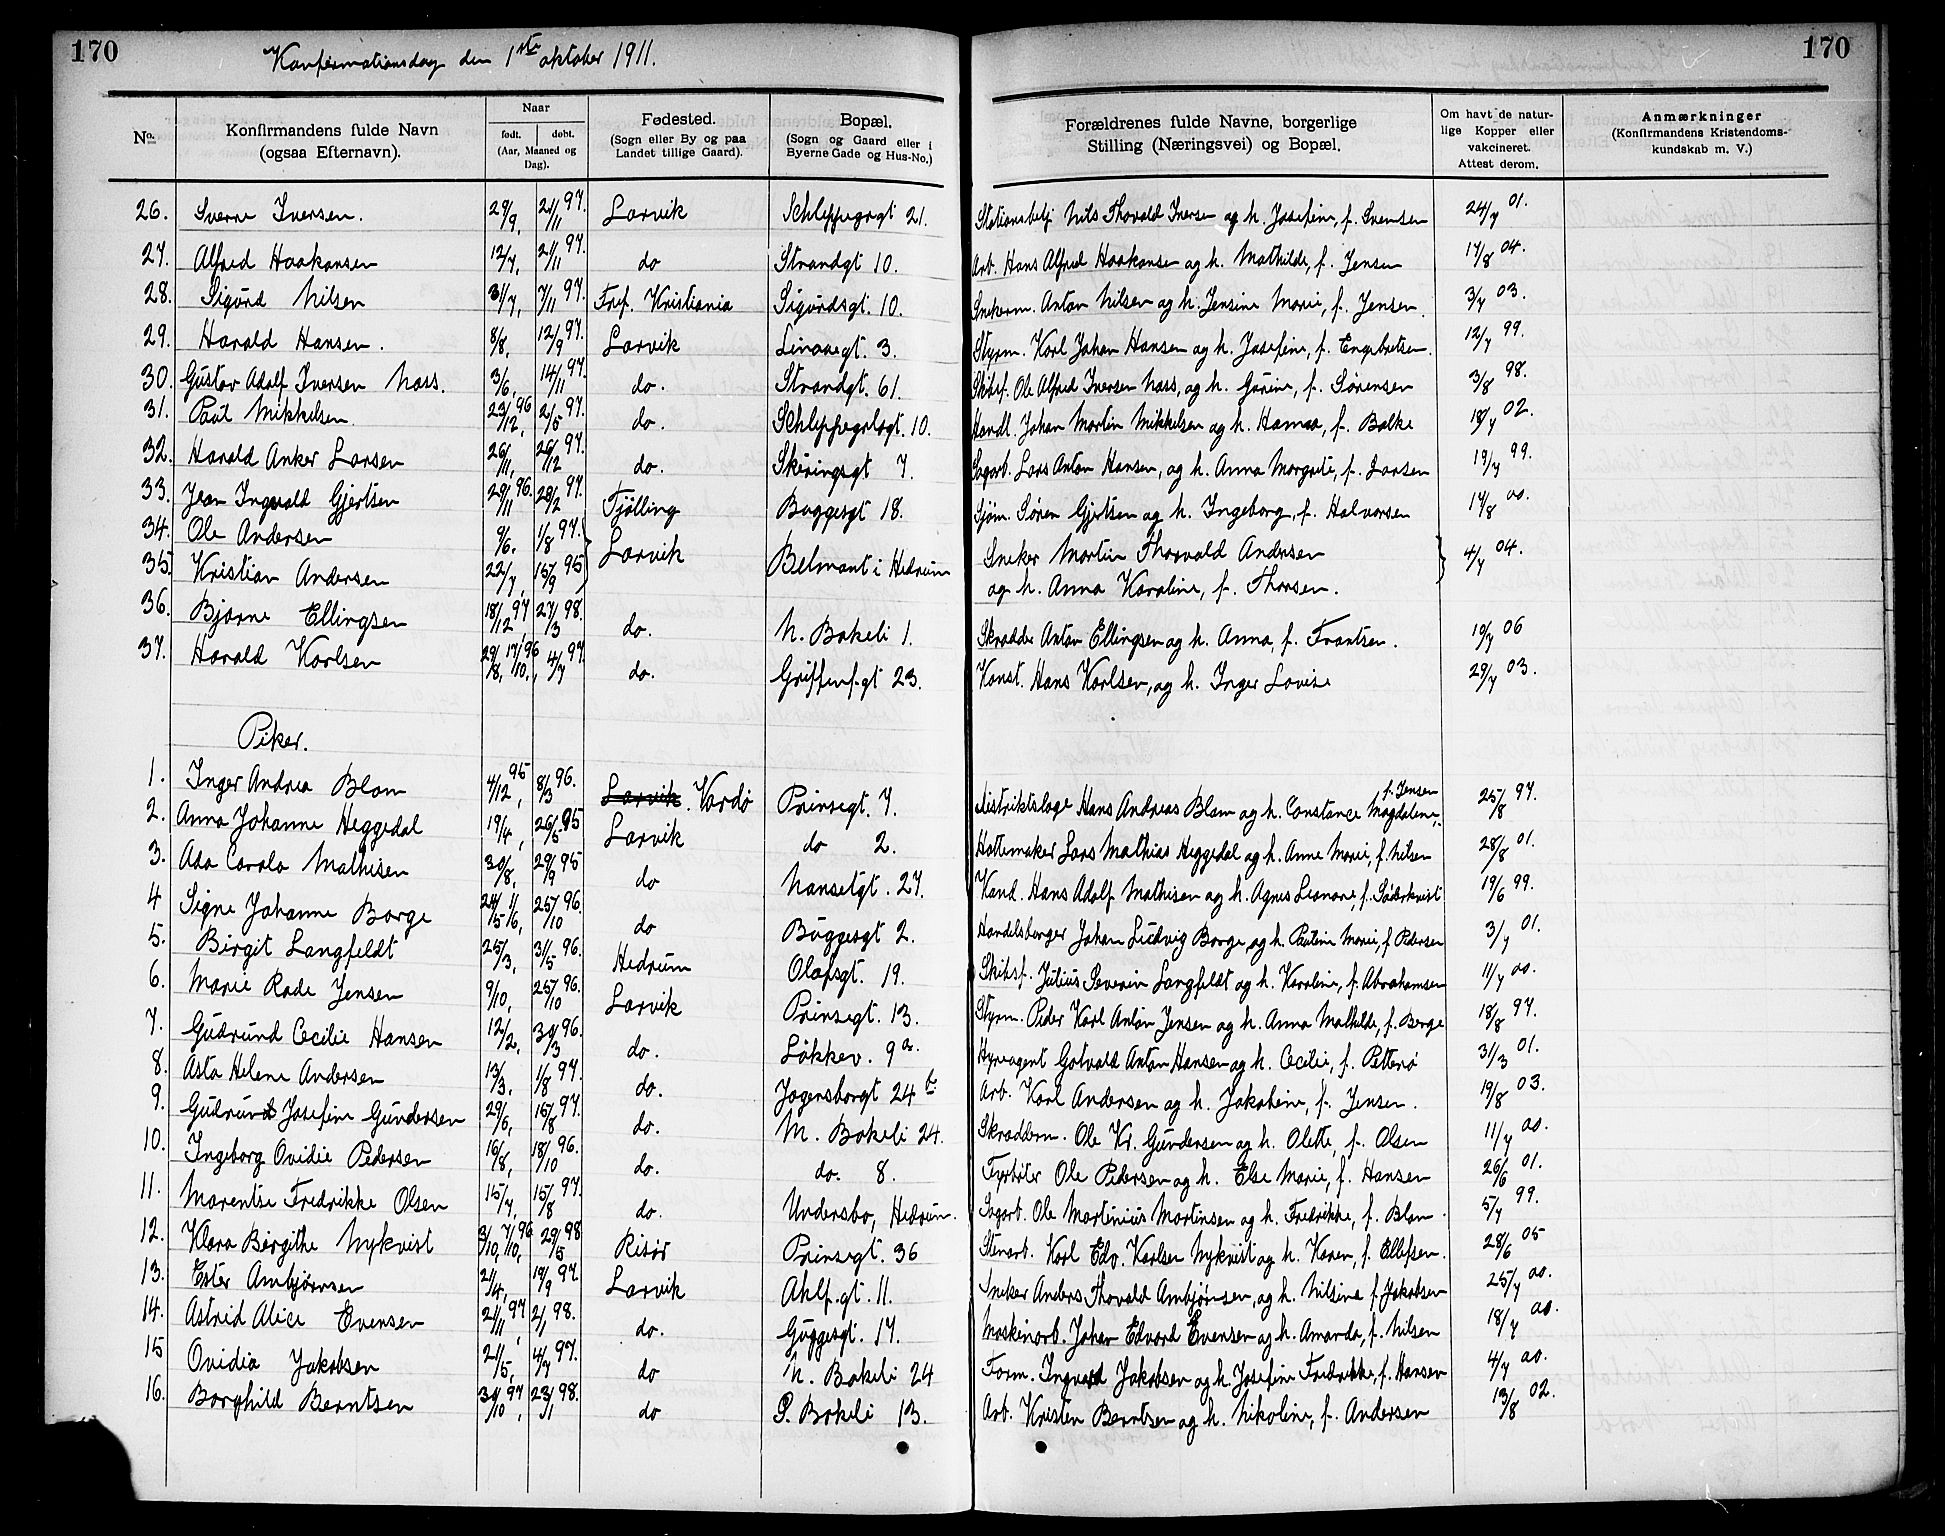 170
Konfirmationsdag den 1ste oktober 1911.
170
No.
Konfirmandens fulde Navn
(ogsaa Efternavn).
Naar
født.
døbt.
(Aar, Maaned og
Dag).
Fødested.
(Sogn eller By og paa
Landet tillige Gaard).
Bopæl.
(Sogn og Gaard eller i
Byerne Gade og Hus-No.)
Forældrenes fulde Navne, borgerlige
Stilling (Næringsvei) og Bopæl.
Om havt de natur-
lige Kopper eller
vakcineret.
Attest derom.
Anmærkninger
(Konfirmandens Kristendoms-
kundskab m. V.)
26. Sverre Iversen. 29/9, 21/11 97. Larvik Schleppegrgt 21. Stationsbetj Nils Thovald Iversen og h. Josefine, f. Svensen 24/7 01.
27. Alfred Haakansen 12/7, 21/11 97. do Strandgt 10. Arb. Hans Alfred Haakansen og h. Mathilde, f. Jensen 17/8 04.
28. Sigurd Nilsen 31/7, 7/11 97. Tref. Kristiania Sigurdsgt. 10. Snekerm. Anton Nilsen og h. Jensine Marie, f. Jensen. 3/7 03.
29. Harald Hansen. 8/8, 12/9 97. Larvik Linaaegt. 3. Styrm. Karl Johan Hansen og h. Josefine, f. Engebretsen. 12/7 99.
30. Gustav Adolf Iversen Nass. 3/6, 14/11 97. do. Strandgt. 61. Skibsf. Ole Alfred Iversen Nass, og h. Gurine, f. Sørensen 3/8 98.
31. Paul Mikkelsen. 23/12, 96 2/5 97. do. Schleppegrelsgt. 10. Handl. Johan Martin Mikkelsen og h. Hanna, f. Balke 18/7 02.
32. Harald Anker Larsen 26/11, 26/12 97. do. Skiringsgt 7. Sagarb. Lars Anton Hansen, og h. Anna Margrete, f. Larsen 19/7 99.
33. Jean Ingvald Gjertsen 29/11 96. 28/2 97. Tjølling Buggesgt 18. Sjøm. Søren Gjertsen og h. Ingeborg, f. Halvorsen 17/8 00.
34. Ole Andersen 9/6, 1/8 97. Larvik Belmont i Hedrum Sneker Martin Thorvald Andersen 4/7 04.
35. Kristian Andersen 22/7, 15/9 95 og h. Anna Karoline, f. Thorsen.
36. Bjarne Ellingsen 18/12 97 27/3 98. do. N. Bøkeli 1. Skrædder Anton Ellingsen og h. Anna, f. Frantsen. 19/7 06
37. Harald Karlsen 29/8, 17/10, 96 4/7 97. do. Griffenf.gt 23. Konst. Hans Karlsen, og h. Inger Lovise 29/7 03.
Piker.
1. Inger Andrea Blom 4/12, 95 8/3 96. Larvik. Vardø Prinsegt. 7. distriktslæge Hans Andreas Blom og h. Constance Magdalene, f. Jensen 25/8 97.
2. Anna Johanne Heggedal 19/4, 26/5 95 Larvik do 2. Hattemaker Lars Mathias Heggedal og h. Anne Marie, f. Nilsen 28/8 01.
3. Ada Carola Mathisen 30/8, 29/9 95 do Nansetgt. 27. Kand. Hans Adolf Mathisen og h. Agnes Leonore, f. Søderkvist 19/6 99.
4 Signe Johanne Borge 24/5 1/6, 25/10 96. do Buggesgt 2. Handelsborger Johan Ludvig Borge, og h. Pauline Marie, f. Pedersen 3/7 01.
5. Birgit Langfeldt 25/3, 31/5 96. Hedrum Olafsgt. 19. Skibsf. Julius Severin Langfeldt og h. Karoline, f. Abrahamsen 11/7 00.
6. Marie Rode Jensen 9/10, 25/10 96. Larvik Prinsegt. 13. Styrm. Peder Karl Anton Jensen og h. Anna Mathilde, f. Berge 18/8 97.
7. Gudrund Cecilie Hansen 12/2, 30/3 96. do. Løkkev. 9 a. Hyreagent Gotvald Anton Hansen og h. Cecilie, f. Petterø 31/3 01.
8. Asta Helene Andersen 13/3. 1/8 97. do. Jegersborgt 24 b. Arb. Karl Andersen og h. Jakobine, f. Jensen. 19/8 03.
9. Gudrund Josefine Gundersen 29/6, 15/8 97. do. M. Bøkeli 24. Skræddem. Ole Kr. Gundersen og h. Olette, f. Olsen 11/7 00.
10. Ingeborg Ovidie Pedersen 16/8, 18/10 96. do. do. 8. Fyrbøter Ole Pedersen og h. Else Marie, f. Hansen 26/6 01.
11. Marentse Fredrikke Olsen 15/7, 15/8 97. do. Undersbo, Hedrum. Sagarb. Ole Martinius Martinsen og h. Fredrikke, f. Blom. 5/7 99.
12. Klara Birgithe Nykvist 3/10, 7/10, 96 29/5 98 Risør Prinsegt. 36 Stenarb. Karl Edv. Karlsen Nykvist og h. Karen, f. Ellefsen. 28/6 05
13. Ester Ambjørnsen 21/4, 19/9 97. Larvik Ahlf.gt. 11. Sneker Anders Thovald Ambjørnsen, og h. Nilsine f. Jakobsen 25/7 00.
14. Astrid Alice Evensen 21/11, 97 2/1 98. do. Guggesgt. 17. Maskinarb. Johan Edvard Evensen og h. Amanda, f. Nilsen 18/7 00.
15 Ovidia Jakobsen 21/5, 4/7 97. do N. Bøkeli 24 Form. Ingvard Jakobsen og h. Josefine Fredrikke, f. Hansen 4/7 00.
16. Borghild Berntsen 30/10, 97 23/1 98. do S. Bøkeli 13. Arb. Kristen Berntsen og h. Nikoline, f. Andersen 13/8 02.